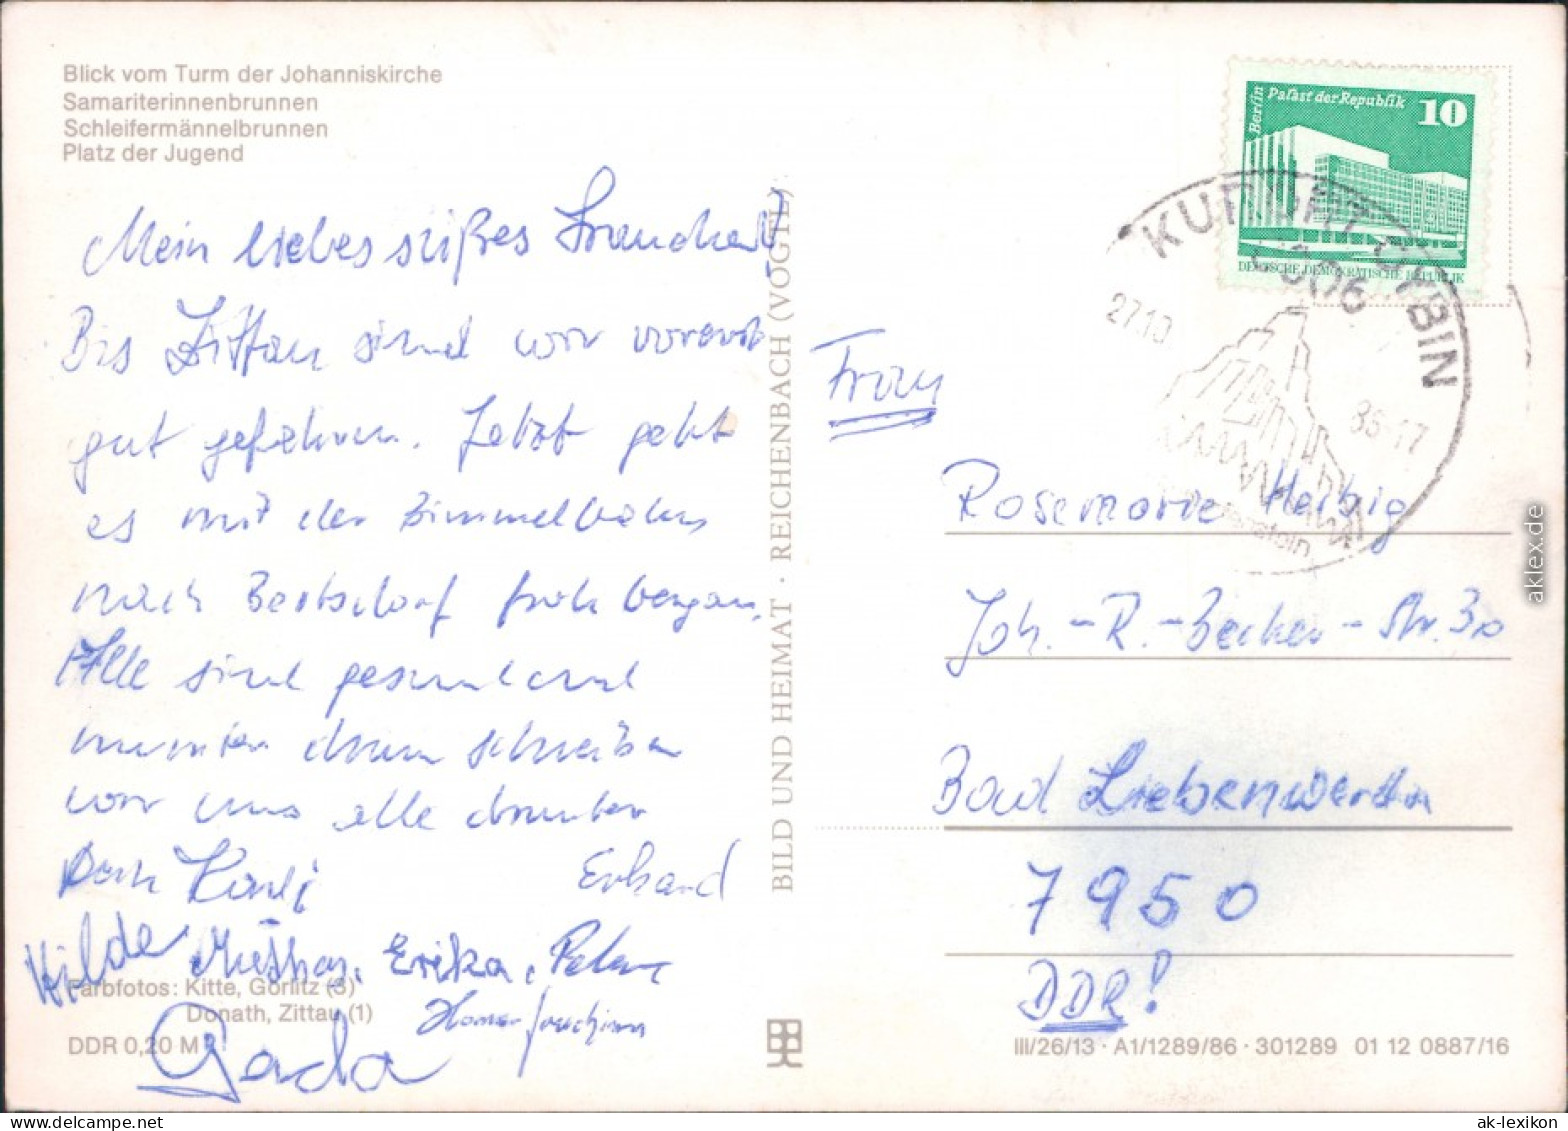 Blick vom Turm der Johanniskirche
Samariterinnenbrunnen
Schleifermännelbrunnen
Platz der Jugend
Mein liebes süßes Frauchen!
Bis Zittau sind wir vorerst
gut gefahren. Jetzt geht
es mit der Bimmelbahn
nach Bertsdorf
Alle sind gesund und
munter drum schreiben
wir uns alle drunter
Dein
Erhard
Hilde
Erika, Peter
Hans Joachim
Gerda
Farbfotos: Kitte, Görlitz (3)
Donath, Zittau (1)
DDR 0,20 M
BILD UND HEIMAT · REICHENBACH (VOGTL)
Berlin
Palast der Republik
10
DEUTSCHE DEMOKRATISCHE REPUBLIK
KURORT OYBIN
8806
27.10
86-17
Frau
Rosemarie Helbig
Joh.-R.-Becher-Str. 30
Bad Liebenwerda
7950
DDR!
III/26/13 · A1/1289/86 · 301289 01 12 0887/16
aklex.de
ak-lexikon